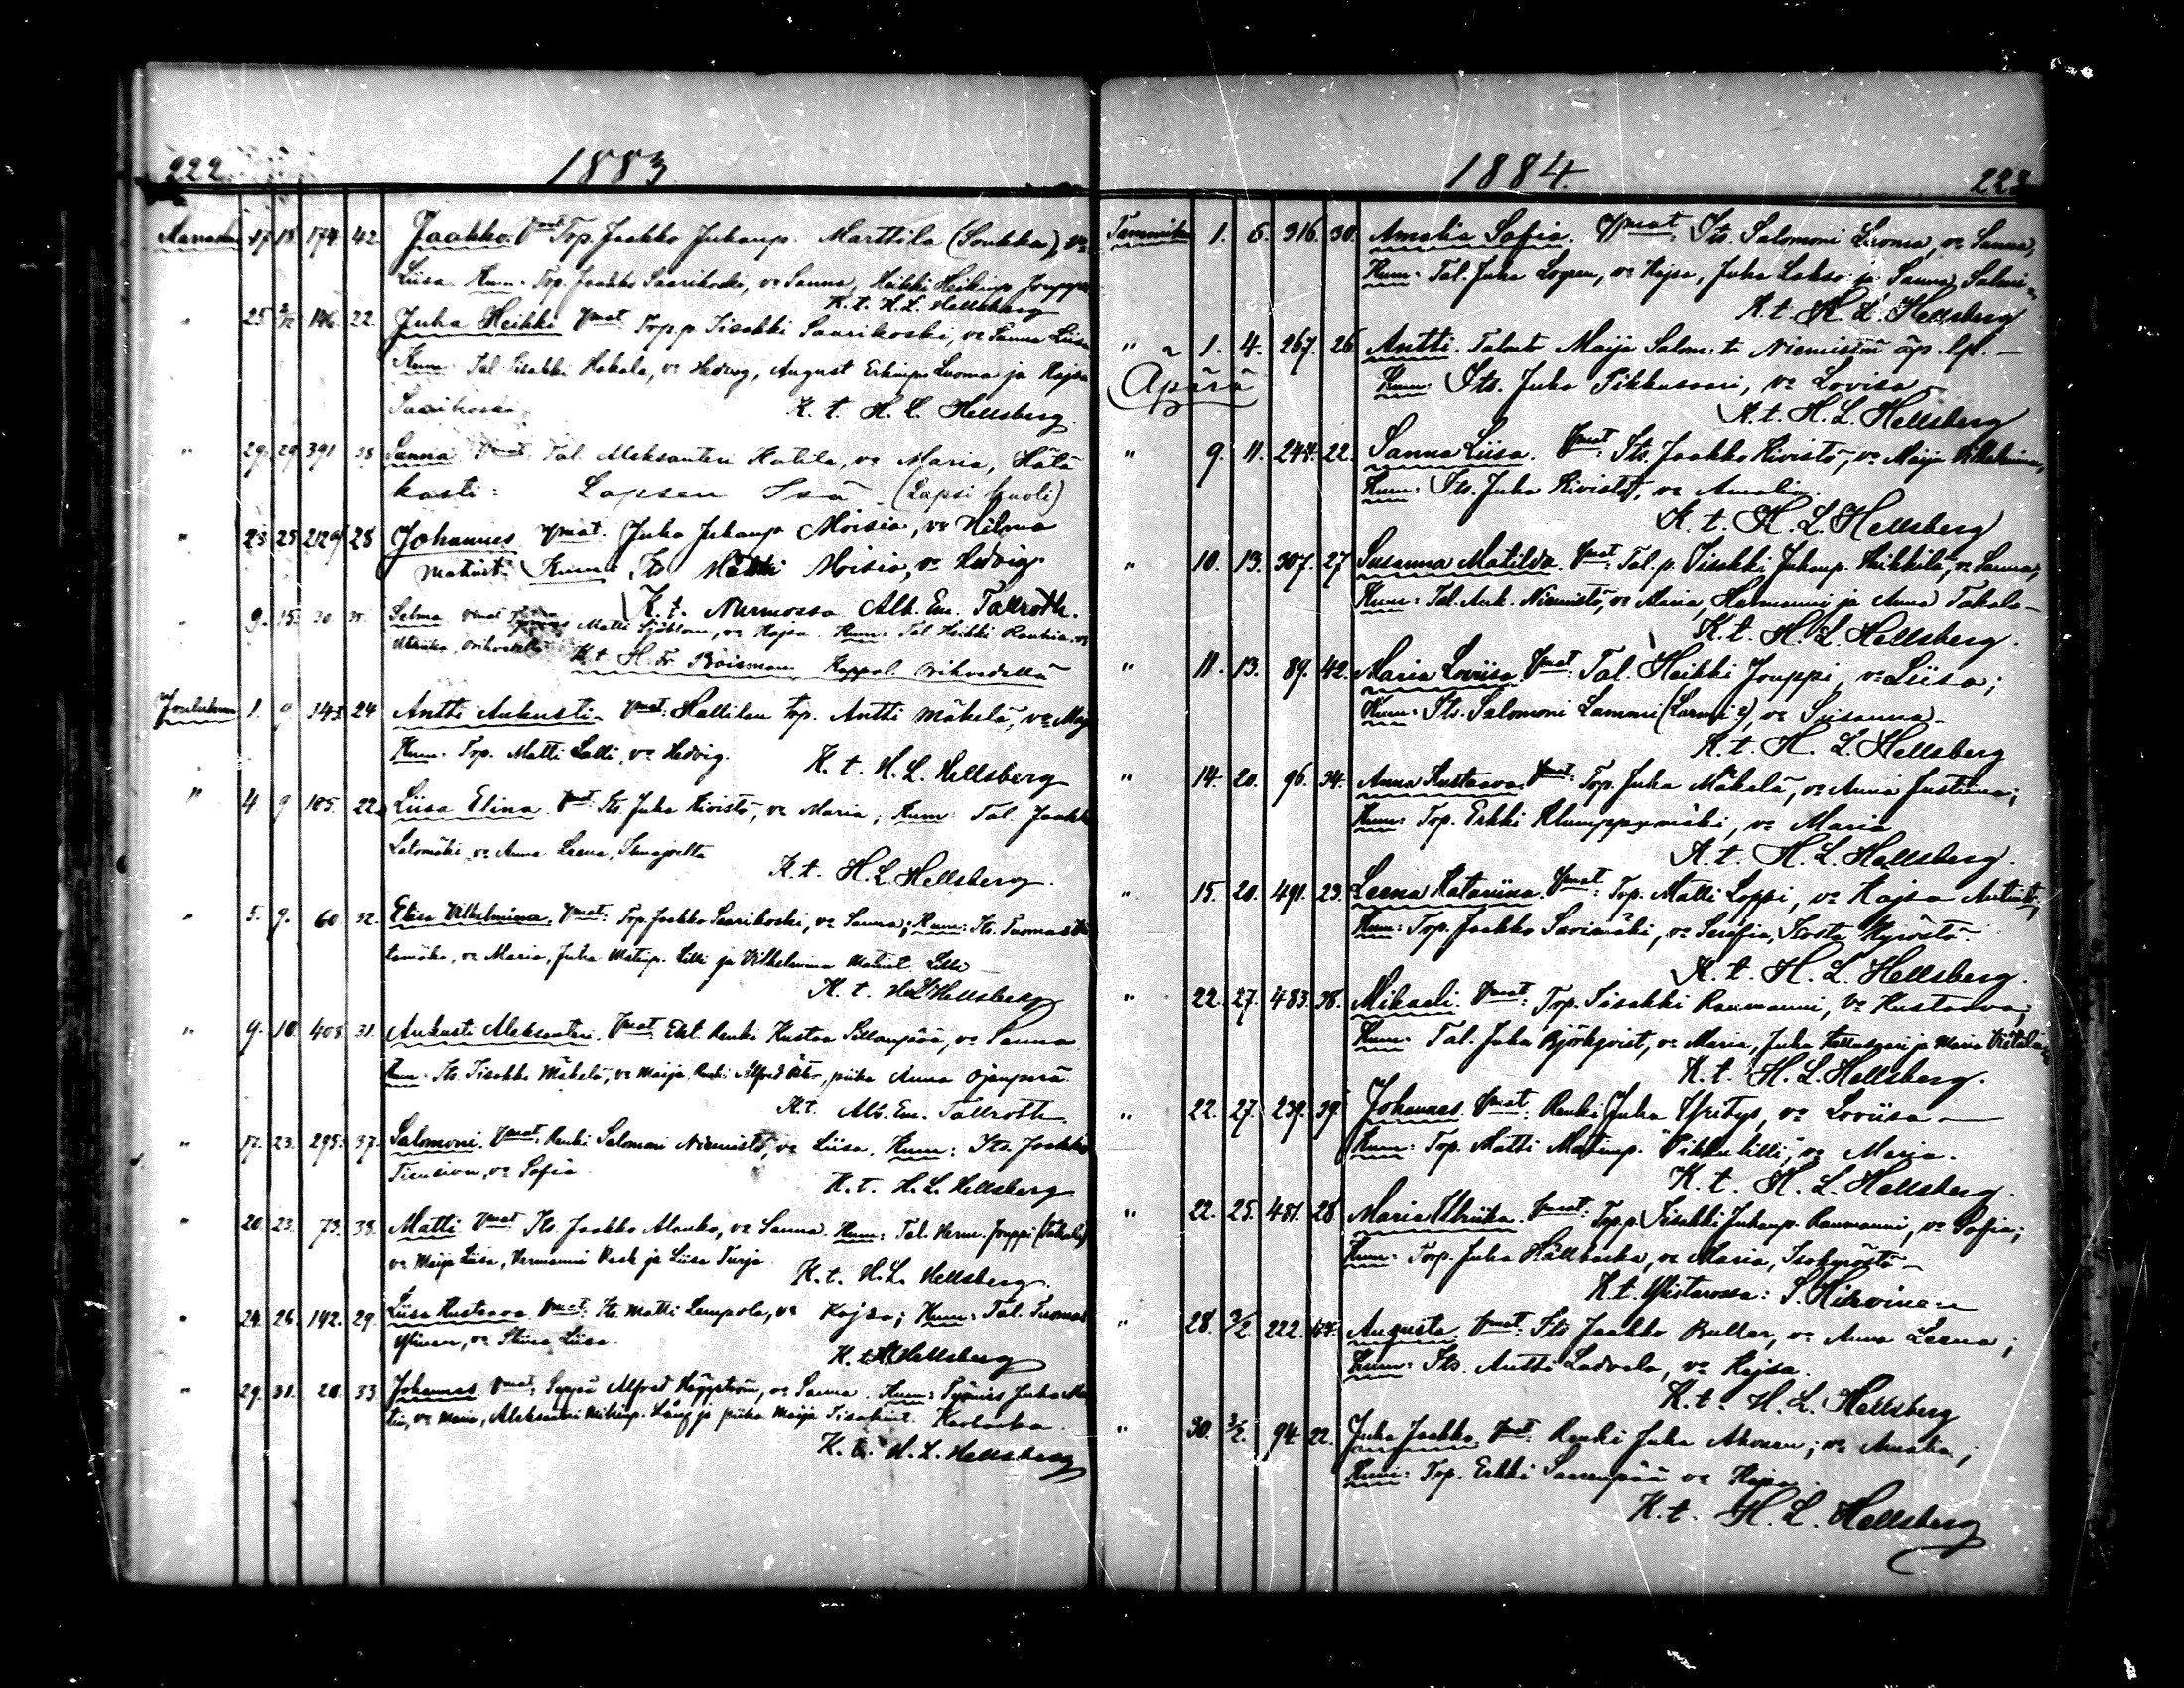 222 1883
Marrask. 17. 18. 174. 42. Jaakko. Vmat Torp. Jaakko Juhanp. Marttila (Soukka), vo
Liisa. Kum. Torp. Jaakko Saarikoski, vo Sanna, Heikki Heikinp. Jouppi
K. t. H. L. Hellsberg
" 25. 2/12 146. 22. Juha Heikki Vmat Torp.p. Iisakki Saarikoski, vo Sanna Liisa
Kum. Tal. Iisakki Hakala, vo Hedvig, August Erkinp. Luoma ja Kajsa
Saarikoski. K. t. H. L. Hellsberg.
" 29. 29. 391 Sanna Vmat Tal. Aleksanteri Katila, vo Maria, Hätä
kasti: Lapsen Isä. (Lapsi kuoli)
" 23 25 28 Johannes Vmat. Juha Juhanp Moisio, vo Hilma
Matint. Kum: Its Matti Moisio, vo Hedvig.
K. t. Nurmossa Alb. Em. Tallroth.
" 9. 15. 30. Selma Vmat Matti Sjöblom, vo Kajsa. Kum: Tal. Heikki Rauhia, vo
Ulriika, Orihvedeltä K. t. H. Fr. Boisman, Kappal. Orihvedellä
Jouluk. 1. 9. 143. 24 Antti Aukusti. Vmat: Hallilan Torp. Antti Mäkelä, vo Maja
Kum. Torp. Matti Lalli, vo Hedvig. K. t. H. L. Hellsberg
" 4. 9 105. 22. Liisa Elina. Vmat: Its. Juha Kivistö, vo Maria; Kum: Tal. Jaakko
Latomäki, vo Anna Leena, Ilmajoelta
K. t. H. L. Hellsberg.
" 5. 9. 60. 32. Elisa Vilhelmina. Vmat: Torp. Jaakko Saarikoski, vo Sanna; Kum: Its. Tuomas
tamäki, vo Maria, Juha Matinp. Lilli ja Vilhelmina Matint. Lilli
K. t. H L Hellsberg
" 9. 10. 408. 31. Aukusti Aleksanteri. Vmat: Eht. Renki Kustaa Sillanpää, vo Sanna
Kum. Its. Iisakki Mäkelä, vo Maija, Renki Alfred, piika Anna Ojanperä
K. t. Alb. Em. Tallroth.
" 17. 23. 295. 37. Salomoni. Vmat: Renki Salomoni Niemistö, vo Liisa. Kum: Its. Jaakko
vo Sofia K. t. H. L. Hellsberg.
" 20. 23. 73. 38. Matti Vmat: Its. Jaakko Alanko, vo Sanna. Kum: Tal. Herm. Jouppi (Takala)
vo Maija Liisa, Hermanni Rask ja Liisa Turja. K. t. H. L. Hellsberg.
" 24. 26. 142. 29. Liisa Kustaava Vmat: Its. Matti Lampola, vo Kajsa; Kum: Tal. Tuomas
vo Liisa. K. t. H. Hellsberg
" 29. 31. 20. 33 Johannes Vmat: Seppä Alfred Häggström, vo Sanna. Kum: Juha
vo Maria, Aleksanteri Mikinp. Lång ja piika Maija Iisakint.
K. t. H. L. Hellsberg
1884. 223
Tammikuu 1. 6. 316. 30. Amalia Sofia. Vmat Its. Salomoni Luoma, vo Sanna,
Kum: Tal. Juha Logren, vo Kajsa, Juha Lakso ja Sanna Salmi
K. t. H. L. Hellsberg
" 1. 4. 267. 26 Antti. Talont. Maija Salom: tr Niemistön äp. lps. —
Äpärä Kum: Its. Juha Pikkusaari, vo Lovisa —
K. t. H. L. Hellsberg
" 9. 11. 244. 22. Sanna Liisa. Vmat: Its. Jaakko Kivistö, vo Maija Vilhelmina,
Kum: Its. Juha Kivistö, vo Amalia.
K. t. H. L. Hellsberg
" 10. 13. 307. 27 Susanna Matilda. Vmat: Tal. p. Iisakki Juhanp. Heikkilä, vo Sanna,
Kum: Tal. Ant. Niemistö, vo Maria, Hermanni ja Anna Takala —
K. t. H. L. Hellsberg.
" 11. 13. 89. 42. Maria Loviisa. Vmat: Tal. Heikki Jouppi, vo Liisa;
Kum: Its. Salomoni Lammi (Larmi?), vo Susanna —
K. t. H. L. Hellsberg
" 14. 20. 96. 34. Anna Kustaava. Vmat: Torp. Juha Mäkelä, vo Anna Justiina;
Kum: Torp. Erkki Klumppumäki, vo Maria
K. t. H. L. Hellsberg.
" 15. 20. 491. 23. Leena Katariina. Vmat: Torp. Matti Loppi, vo Kajsa Antint.,
Kum: Torp. Jaakko Savimäki, vo Serafia, Isosta Kyröstä.
K. t. H. L. Hellsberg.
" 22. 27. 483. 38. Mikaeli. Vmat: Torp. Iisakki Raumanni, vo Kustaava;
Kum: Tal. Juha Björkqvist, vo Maria, Juha ja Maria
K. t. H. L. Hellsberg.
" 22. 27. 239. 39. Johannes. Vmat: Renki Juha Yritys, vo Loviisa —
Kum: Torp. Matti Matinp. Pikkulilli, vo Maria.
K. t. H. L. Hellsberg.
" 22. 25. 481. 28 Maria Ulriika. Vmat: Torp.p. Iisakki Juhanp. Raumanni, vo Sofia;
Kum: Torp. Juha Hällbacka, vo Maria, Isokyröstä —
K. t. Ylistarossa: S. Hirvinen
" 28. 3/2. 222. 44. Augusta. Vmat: Its. Jaakko Buller, vo Anna Leena;
Kum: Its. Antti Ladvala, vo Kajsa.
K. t. H. L. Hellsberg
" 30. 3/2. 94 22. Juha Jaakko. Vmat: Renki Juha Ahonen; vo Amalia;
Kum: Torp. Erkki Saarenpää vo Kajsa.
K. t. H. L. Hellsberg